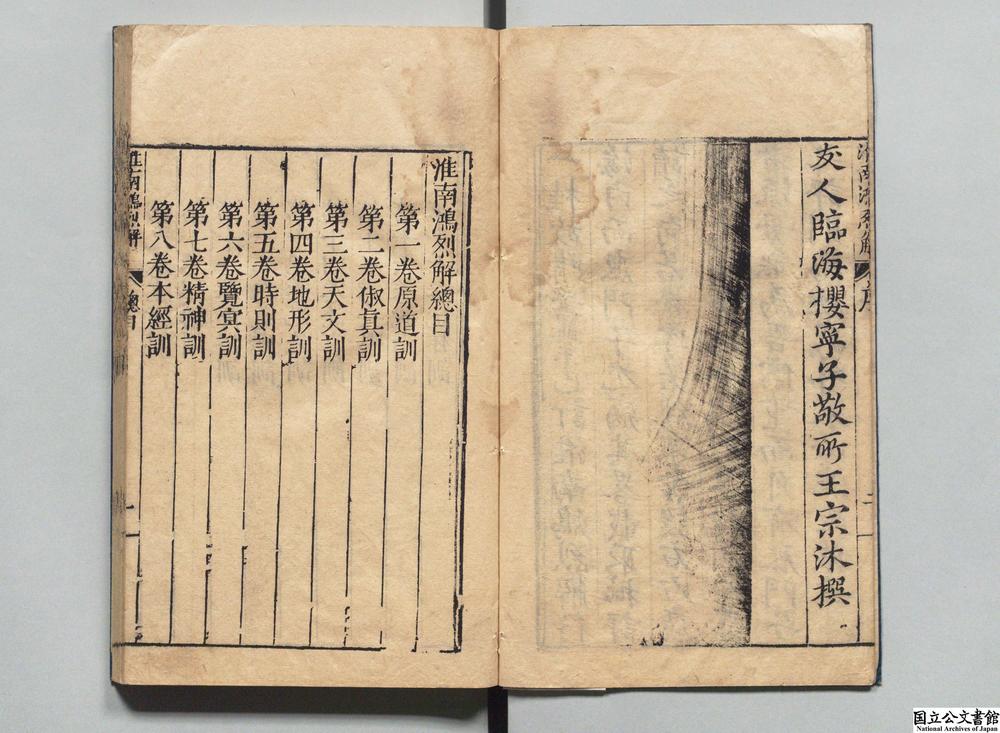 友人臨海櫻寧子敬所王宗沐撰
淮南鴻烈解
序
淮南鴻烈解總目
第一卷原道訓
第二卷俶真訓
第三卷天文訓
第四卷地形訓
第五卷時則訓
第六卷覽冥訓
第七卷精神訓
第八卷本經訓
淮南鴻烈解
總目
一
国立公文書館
National Archives of Japan